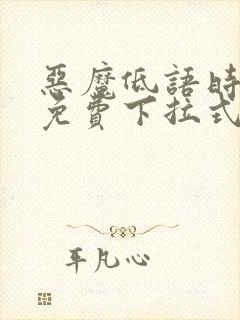 惡魔低語時
免費下拉式
平凡心